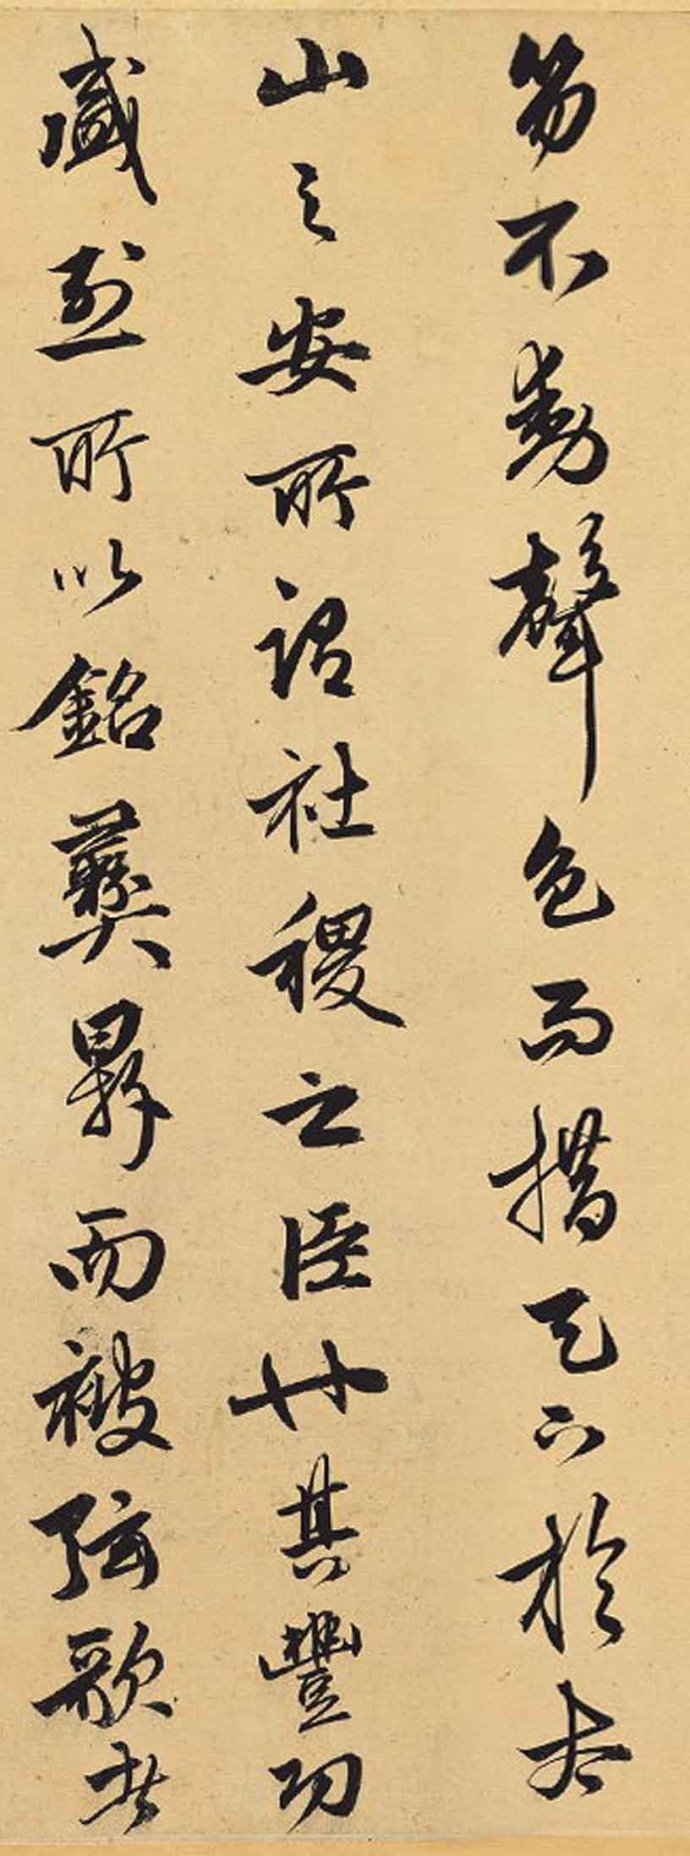 笏不動聲色而措天下於太
山之安所謂社稷之臣廿其豐功
盛烈所以銘彝鼎而被弦歌者